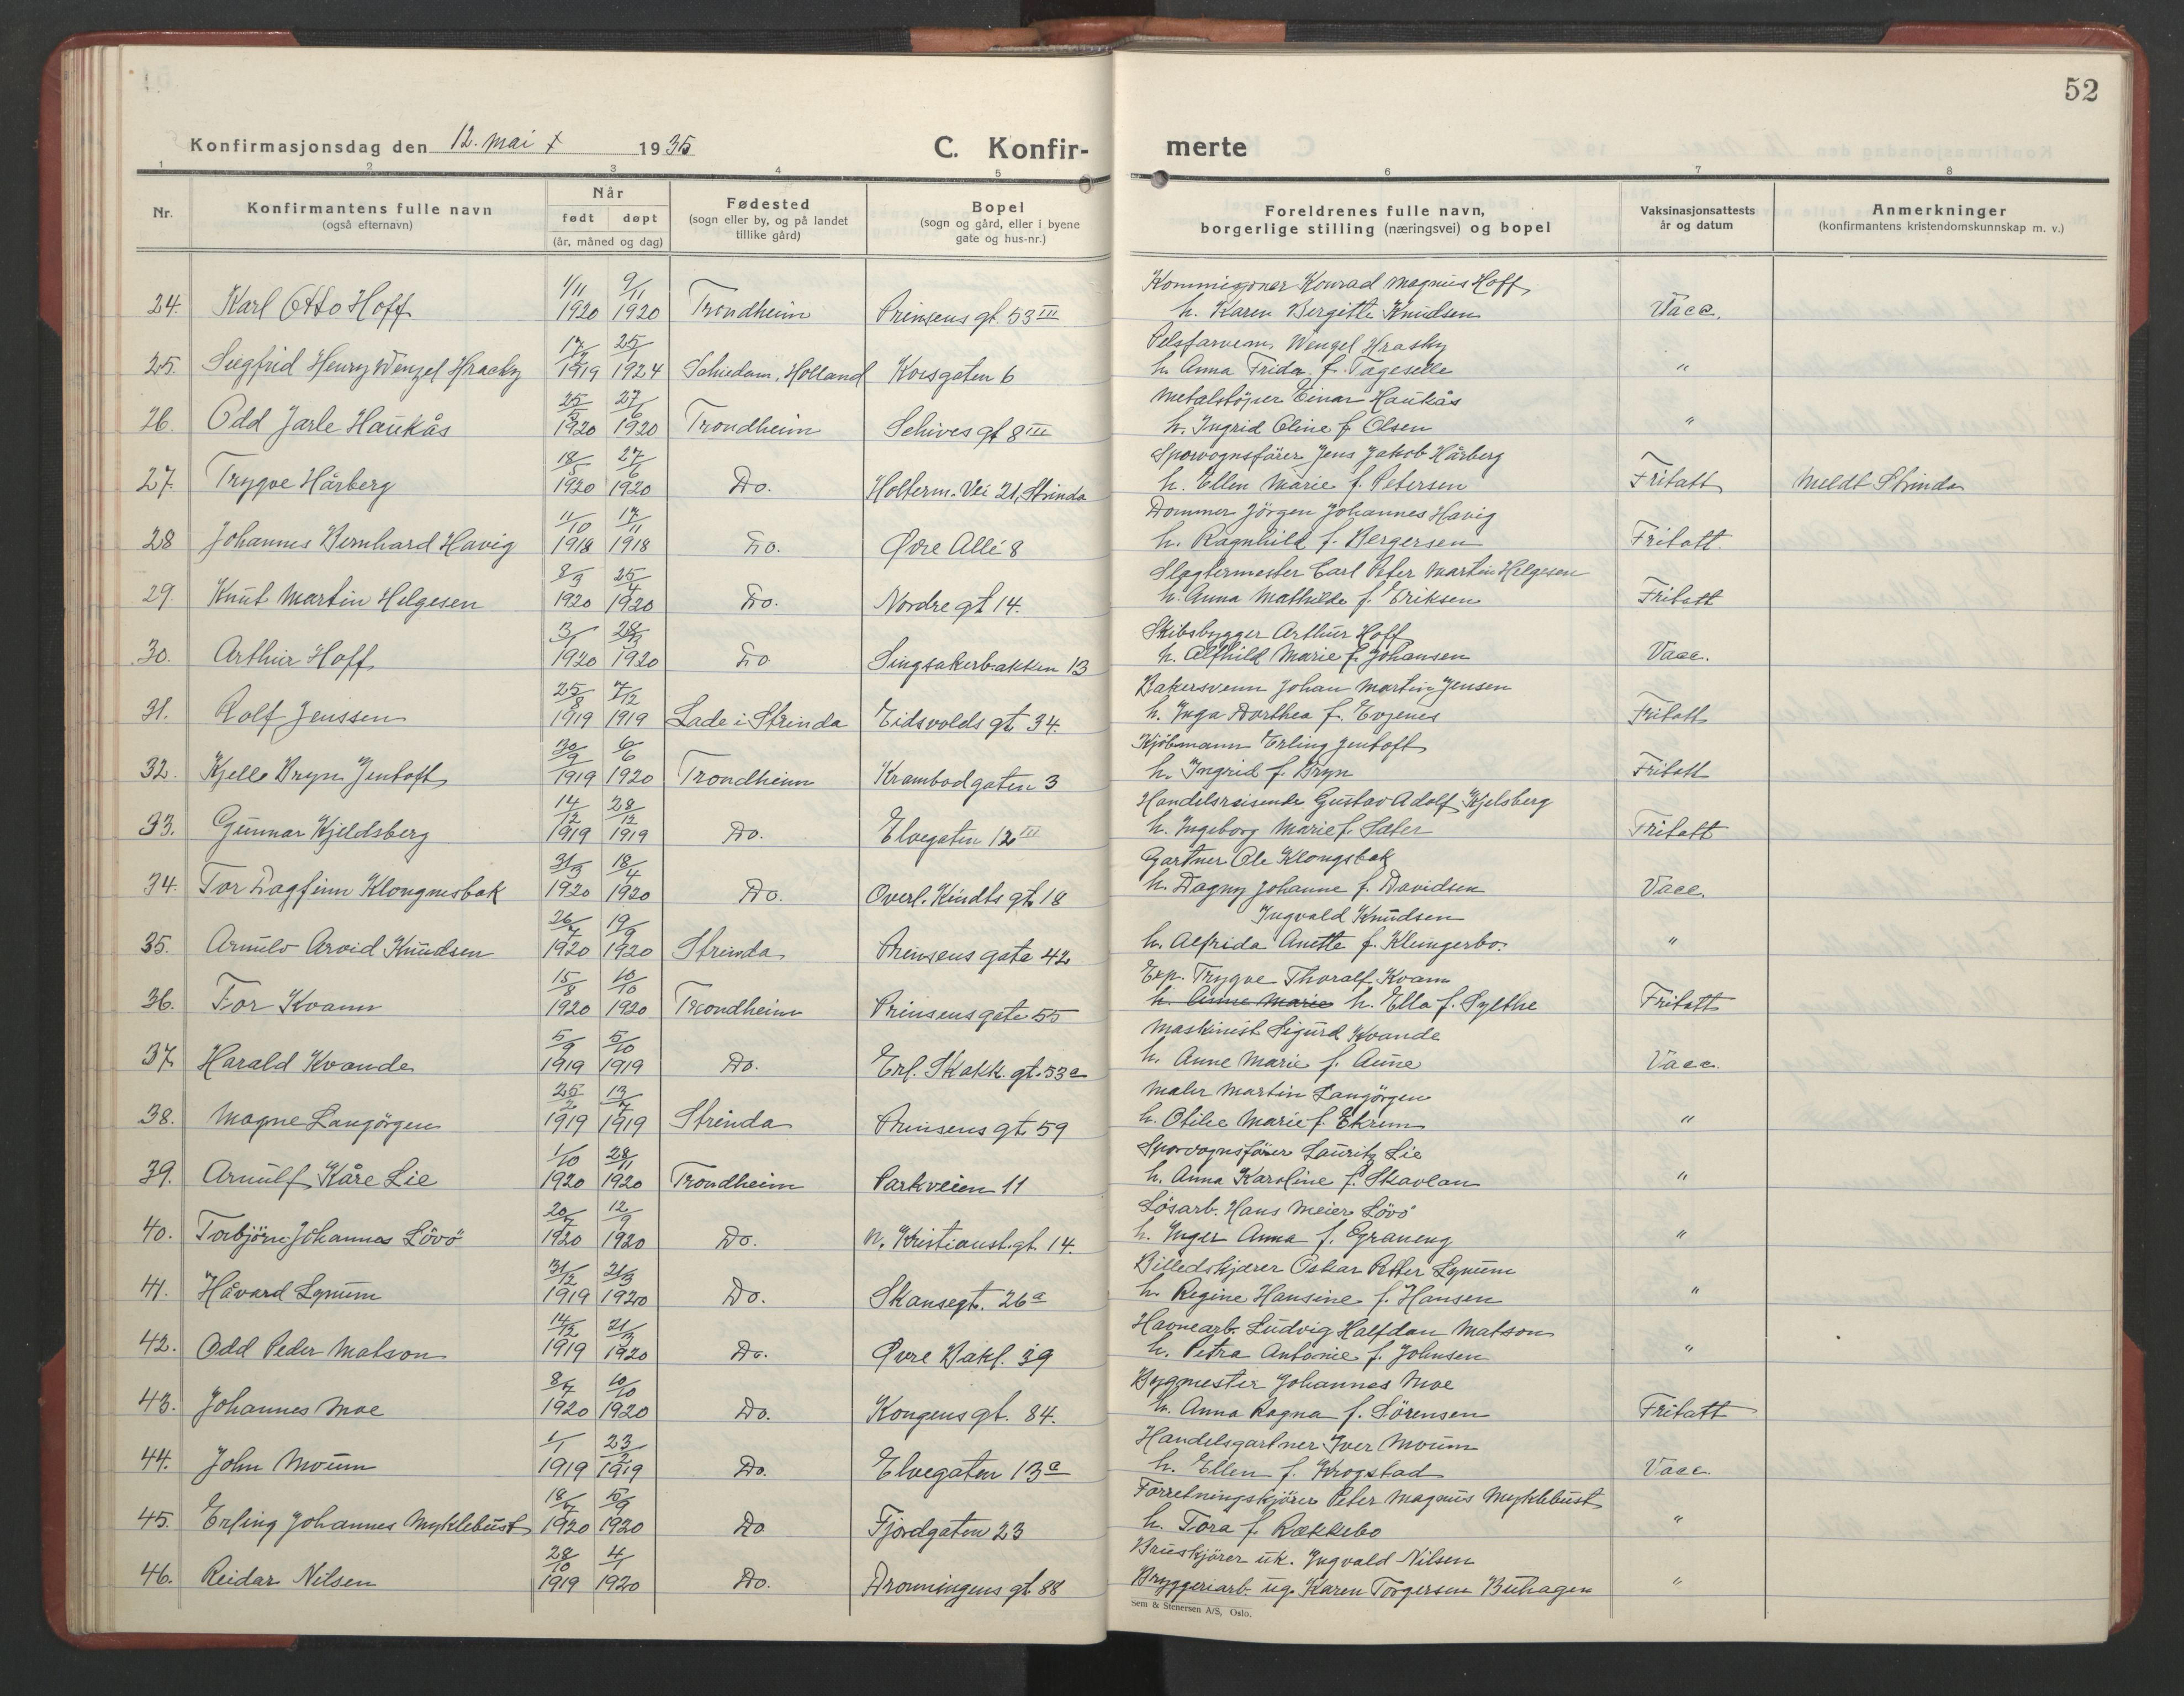 52
Konfirmasjonsdag den 12. mai + 1935
C. Konfir-
merte
1 2 3 4 5 6 7 8
Nr.
Konfirmantens fulle navn
(også efternavn)
Når
født døpt
(år, måned og dag)
Fødested
(sogn eller by, og på landet
tillike gård)
Bopel
(sogn og gård, eller i byene
gate og hus-nr.)
Foreldrenes fulle navn,
borgerlige stilling (næringsvei) og bopel
Vaksinasjonsattests
år og datum
Anmerkninger
(konfirmantens kristendomskunnskap m. v.)
1/11 9/11 Kommisjonær Konrad Magnus Hoff
24. Karl Otto Hoff 1920 1920 Trondheim Prinsens gt. 53 III h. Karen Bergitte Knudsen Vacc.
17/12 25/1 Pelsfarvem. Wenzel Hracky
25. Siegfrid Henry Wenzel Hracky 1919 1924 Schiedam, Holland Korsgaten 6 h. Anna Frida f. Tageselle "
25/5 27/6 Metalstøper Einar Haukås
26. Odd Jarle Haukås 1920 1920 Trondheim Schives gt 8 III h. Ingrid Oline f. Olsen "
18/5 27/6 Sporvognsfører Jens Jakob Hårberg
27. Trygve Hårberg 1920 1920 Do. Holterm. Vei 21, Strinda h. Ellen Marie f. Petersen Fritatt Meldt Strinda
11/10 17/11 Dommer Jörgen Johannes Havig
28 Johannes Bernhard Havig 1918 1918 Do. Øvre Allé 8 h. Ragnhild f. Bergersen Fritatt
8/3 25/4 Slagtermester Carl Peter Martin Helgesen
29. Knut Martin Helgesen 1920 1920 Do. Nordre gt 14. h. Anna Mathilde f. Eriksen Fritatt
3/1 28/3 Skibsbygger Arthur Hoff
30. Arthur Hoff 1920 1920 Do Singsakerbakken 13 h. Alfhild Marie f. Johansen Vacc.
25/8 7/12 Bakersvenn Johan Martin Jensen
31. Rolf Jenssen 1919 1919 Lade i Strinda Eidsvolds gt. 34. h. Inga Dorthea f. Evjenes Fritatt
30/9 6/6 Kjöbmann Erling Jentoft
32. Kjelle Bryn Jentoft 1919 1920 Trondheim Krambodgaten 3 h. Ingrid f. Bryn Fritatt
14/12 28/12 Handelsreisende Gustav Adolf Kjelsberg
33. Gunnar Kjeldsberg 1919 1919 Do. Elvegaten 12 III h. Ingeborg Marie f. Sæter Fritatt
31/3 18/4 Gartner Ole Klongsbak
34. Tor Dagfinn Klongnesbak 1920 1920 Do. Overl. Kindts gt. 18 h. Dagny Johanne f. Davidsen Vacc.
26/7 19/9 Ingvald Knudsen
35. Arnulv Arvid Knudsen 1920 1920 Strinda Prinsens gate 42 h. Alfrida Anette f. Klingerbo. "
15/8 10/10 Exp. Trygve Thoralf Kvam
36. Tor Kvam 1920 1920 Trondheim Prinsens gate 55 h. Anne Marie h. Ella f. Sylthe Fritatt
5/9 5/10 Maskinist Sigurd Kvande
37 Harald Kvande 1919 1919 Do. Erl. Skakk. gt. 53 a h. Anne Marie f. Aune Vacc.
25/2 13/7 Maler Martin Langörgen
38. Magne Langörgen 1919 1919 Strinda Prinsens gt 59 h. Otilie Marie f. Ekrem "
1/10 28/11 Sporvognsförer Lauritz Lie
39. Arnulf Kåre Lie 1920 1920 Trondheim Parkveien 11 h. Anna Karoline f. Skavlan "
20/7 12/9 Lösarb. Hans Meier Lövö
40. Torbjörn Johannes Lövö 1920 1920 Do. N. Kristianst. gt. 14. h. Inger Anna f. Egraneng "
31/12 21/3 Billedskjærer Oskar Petter Lynum
41. Håvard Lynum 1919 1920 Do. Skansegt. 26 a h. Regine Hansine f. Hansen "
14/12 21/3 Havnearb. Ludvig Halfdan Matson
42. Odd Peder Matson 1919 1920 Do. Øvre Bakl. 39 h. Petra Antonie f. Johnsen "
8/7 10/10 Bygmester Johannes Moe
43. Johannes Moe 1920 1920 Do. Kongens gt. 84. h. Anna Ragna f. Sörensen Fritatt
1/1 23/2 Handelsgartner Iver Moum
44. John Moum 1919 1919 Do. Elvegaten 13 a h. Ellen f. Krogstad Vacc.
18/7 5/9 Forretningskjörer Peter Magnus Myklebust
45. Erling Johannes Myklebust 1920 1920 Do Fjordgaten 23 h. Tora f. Rækkebo "
28/10 4/1 Bruskjörer uk. Ingvald Nilsen
46. Reidar Nilsen 1919 1920 Do. Dronningens gt. 88 Bryggeriarb. ug. Karen Torgersen Buhagen "
Sem & Stenersen A/S, Oslo.